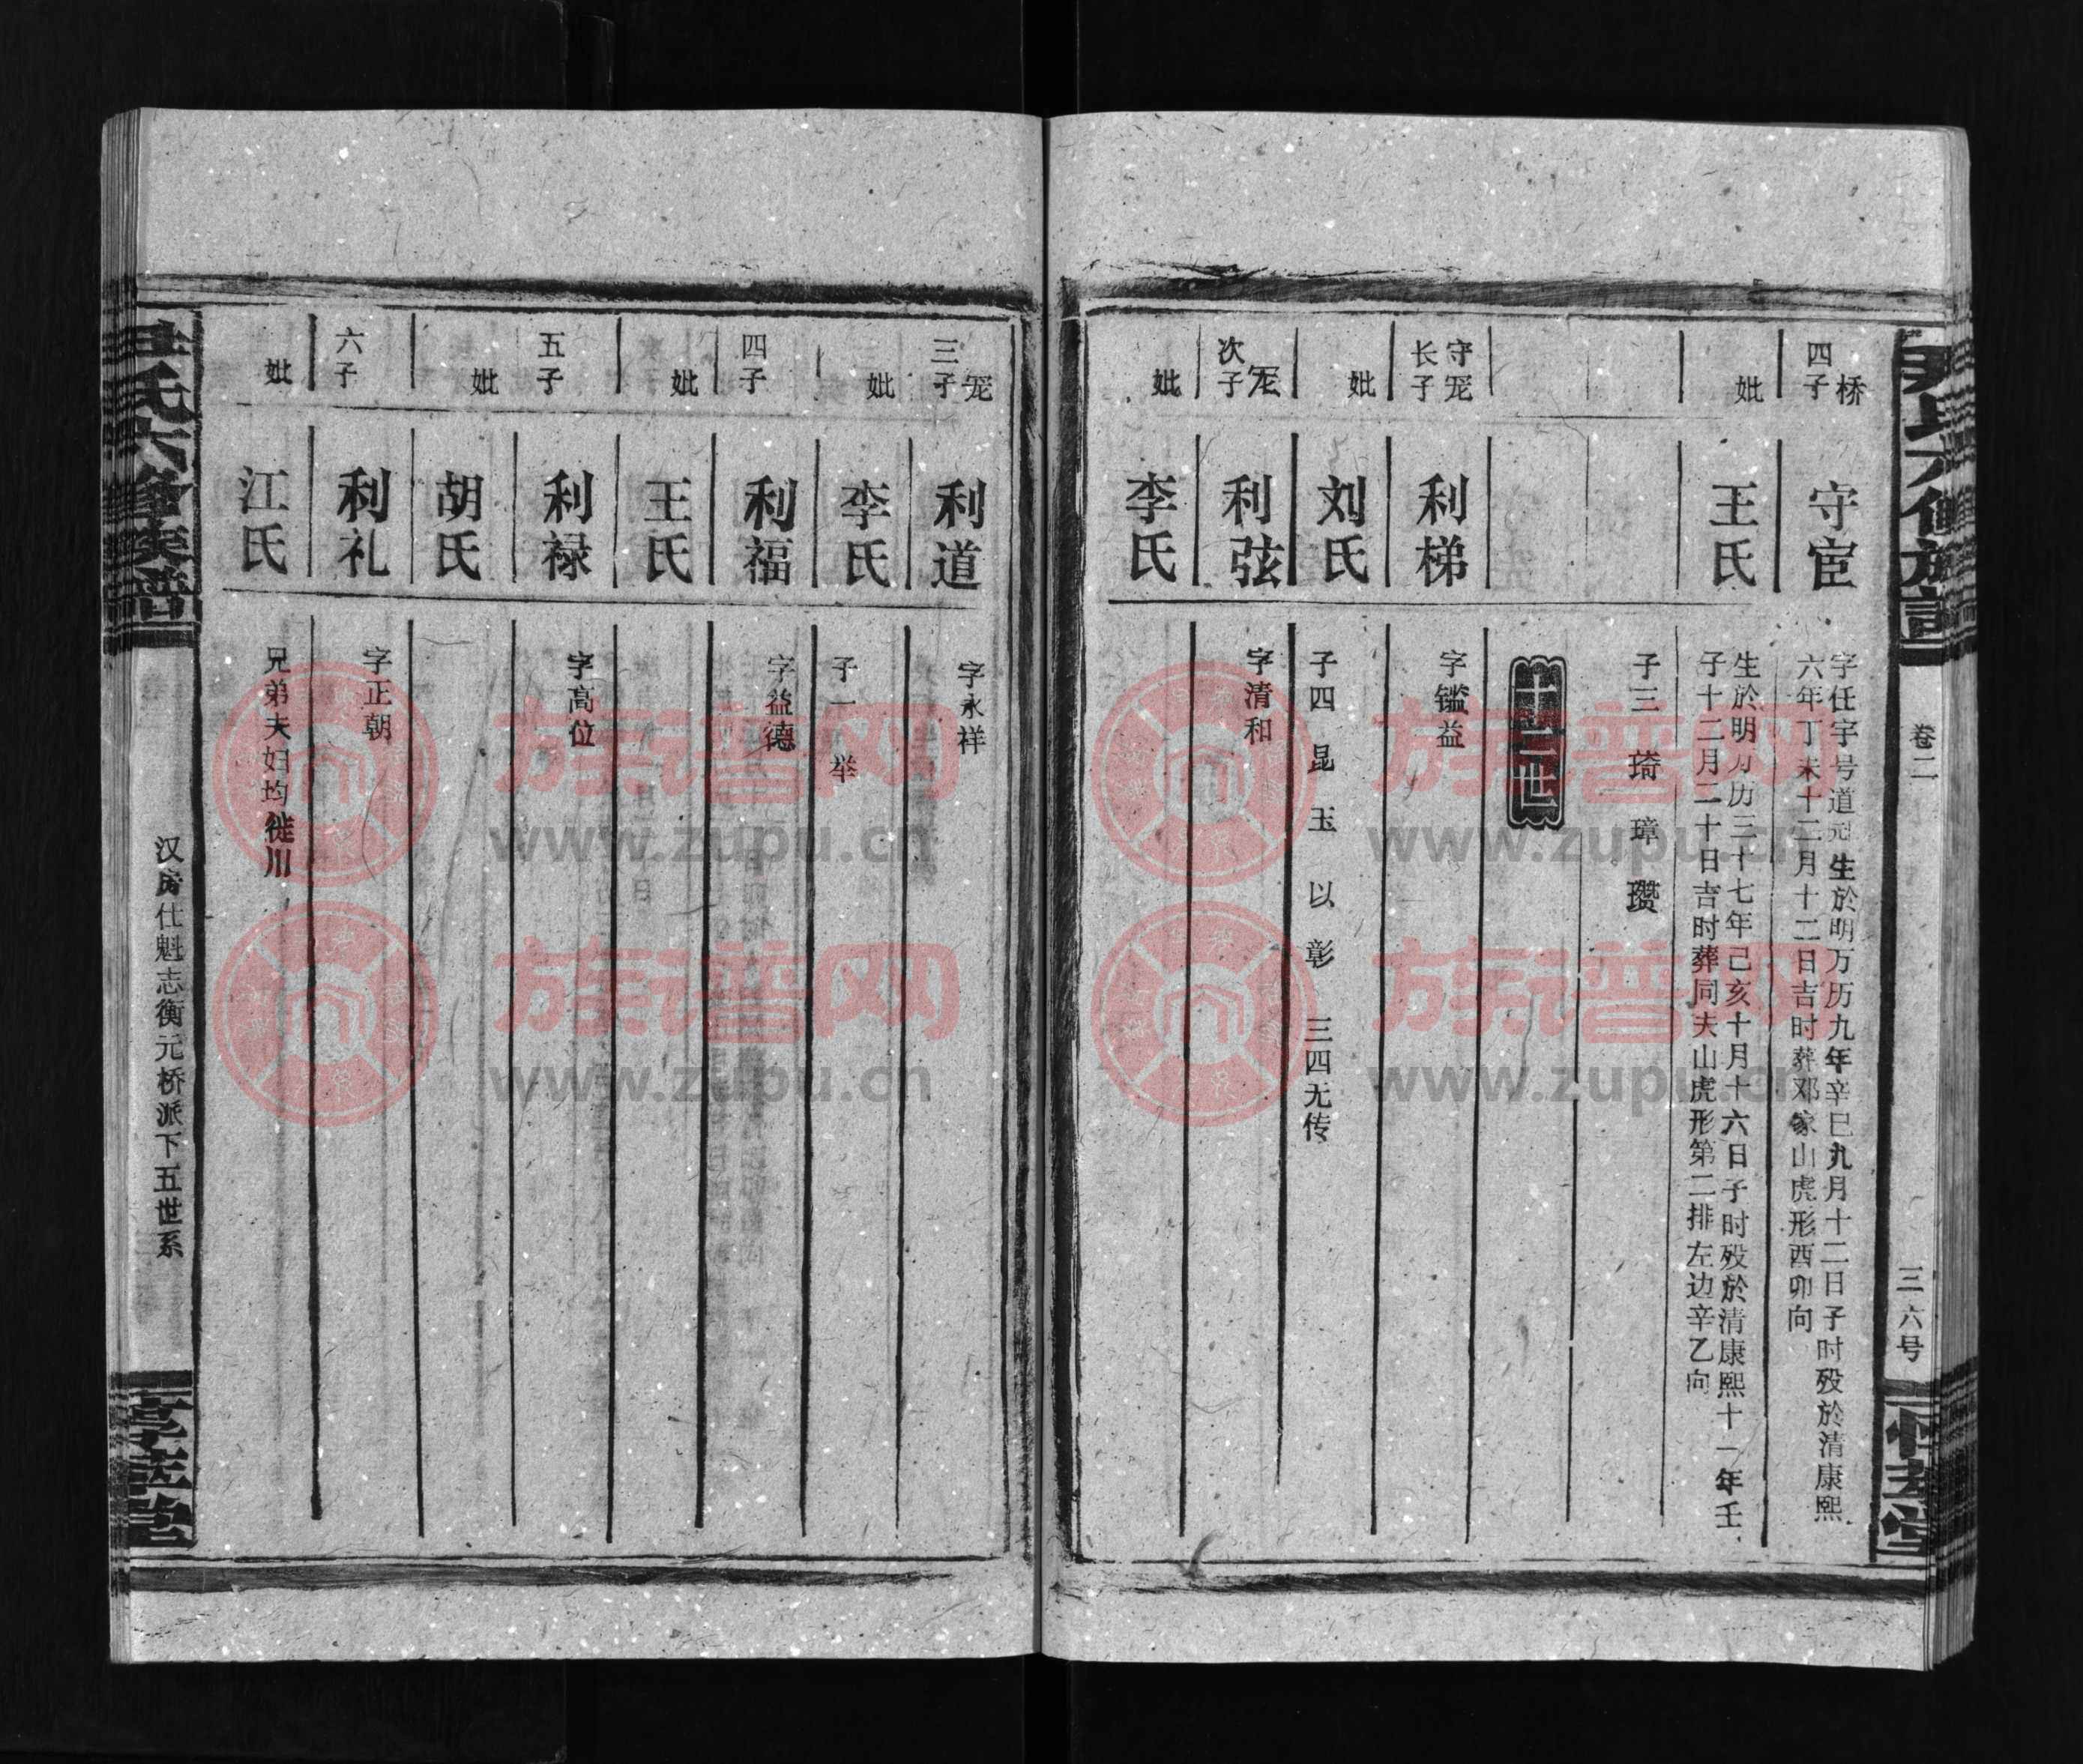 尹氏六修族谱
卷二
三六号
桥
四子
守宦
字任宇号道冠生於明万历九年辛巳九月十二日子时殁於清康熙
六年丁未十二月十二日吉时葬邓家山虎形酉卯向
妣
王氏
生於明万历三十七年己亥十月十六日子时殁於清康熙十一年壬
子十二月二十日吉时葬同夫山虎形第二排左边辛乙向
子三 琦 璋 瓒
十二世
守宠
长子
利梯
字镒益
妣
刘氏
子四 昆 玉 以 彰 三四无传
宠
次子
利弦
字清和
妣
李氏
宠
三子
利道
字永祥
妣
李氏
子一 举
四子
利福
字益德
妣
王氏
五子
利禄
字高位
妣
胡氏
六子
利礼
字正朝
妣
江氏
兄弟夫妇均徙川
尹氏六修族谱
汉房仕魁志衡元桥派下五世系
族谱网
www.zupu.cn
族谱网
www.zupu.cn
族谱网
www.zupu.cn
族谱网
www.zupu.cn